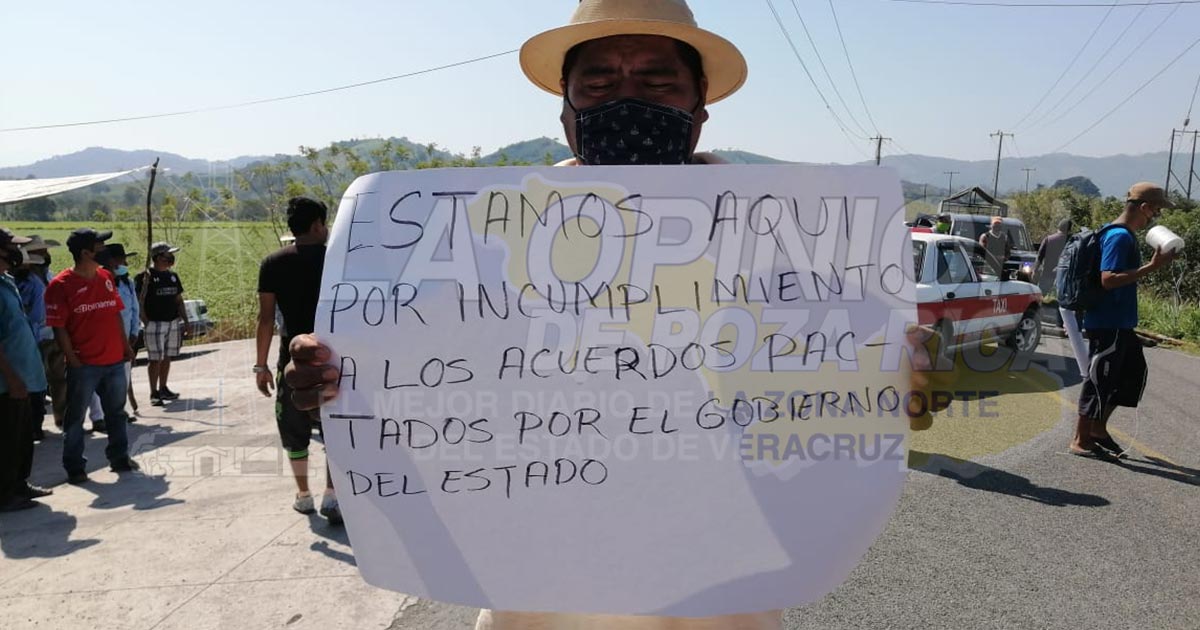 ESTAMOS AQUI
POR INCUMPLIMIENTO
A LOS ACUERDOS PAC-
TADOS POR EL GOBIERNO
DEL ESTADO
LA OPINIÓN
DE POZA RICA
EL MEJOR DIARIO DE LA ZONA NORTE
DEL ESTADO DE VERACRUZ
Binamex
TAXI